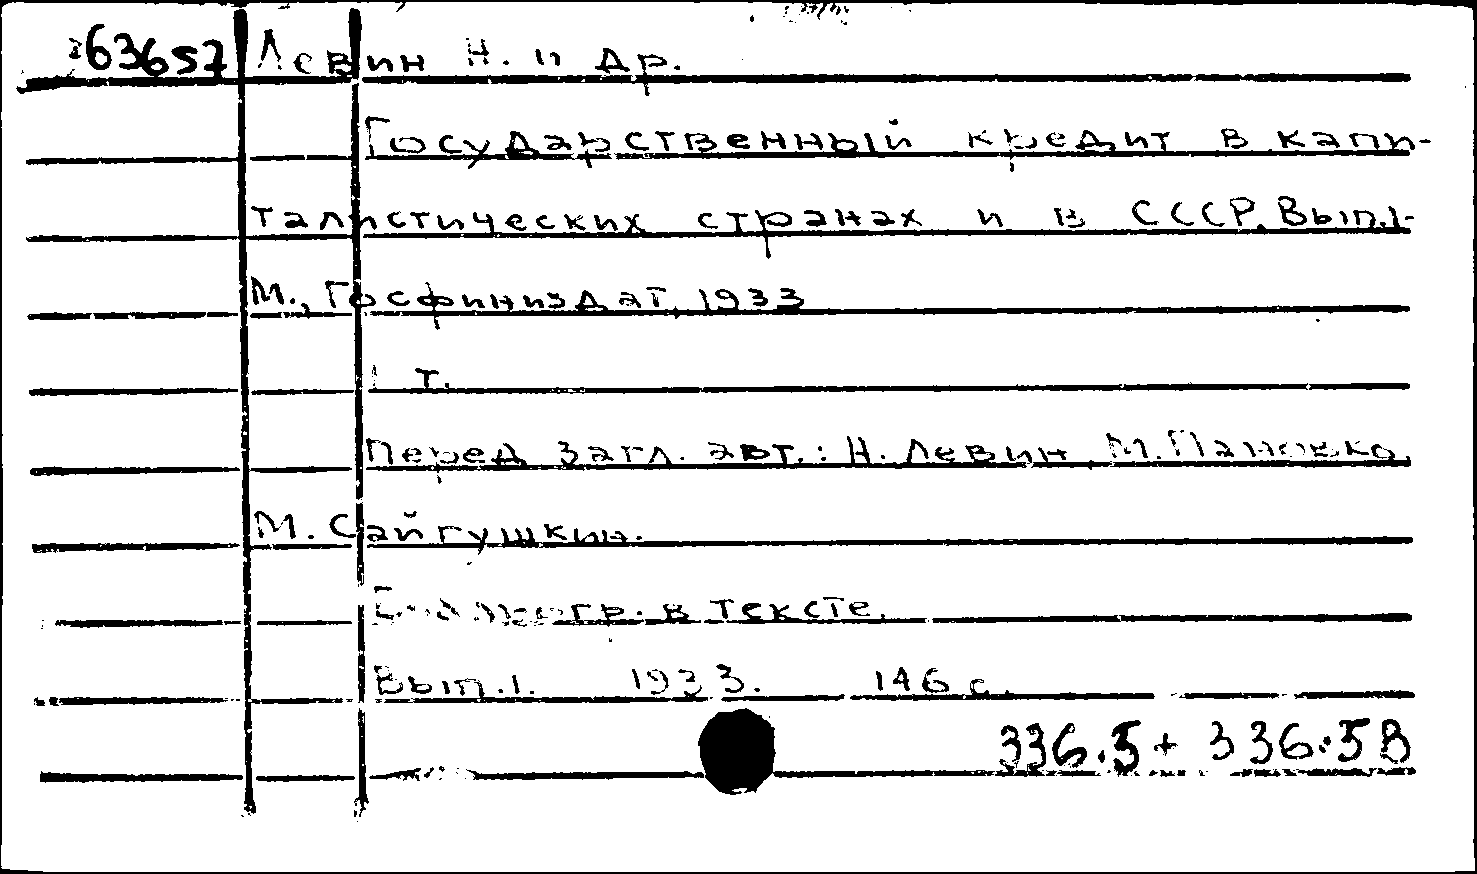 63657 Левин Н. и др.
Государственный кредит в капи-
талистических странах и в СССР. Вып.1-
М., Госфиниздат, 1933
1 т.
Перед загл. авт.: Н. Левин, М. Пановко,
М. Сайгушкин.
Библиогр. в тексте.
Вып.1. 1933. 146 с.
336.5 + 336.5В